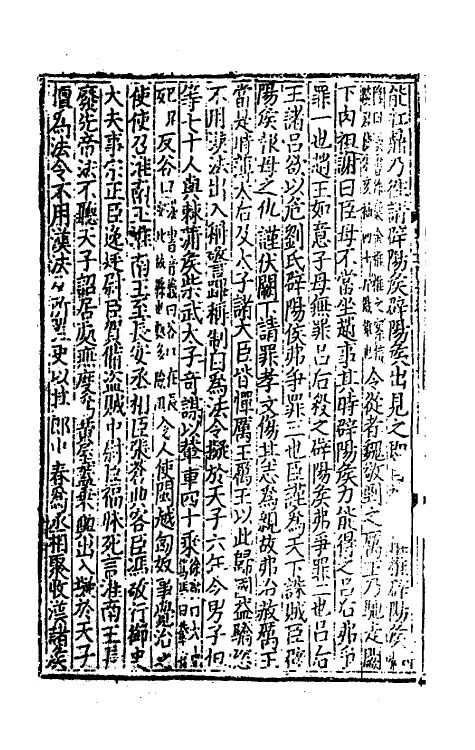 能扛鼎乃往請辟陽侯辟陽侯出見之即自 椎辟陽侯
令從者魏敬剄之厲王乃馳走闕
下肉袒謝曰臣母不當坐趙事其時辟陽侯力能得之呂后弗爭
罪一也趙王如意子母無罪呂后殺之辟陽侯弗爭罪二也呂后
王諸呂欲以危劉氏辟陽侯弗爭罪三也臣謹為天下誅賊臣辟
陽侯報母之仇謹伏闕下請罪孝文傷其志為親故弗治赦厲王
當是時薄太后及太子諸大臣皆憚厲王厲王以此歸國益驕恣
不用漢法出入稱警蹕稱制自為法令擬於天子六年令男子但
等七十人與棘蒲侯柴武太子奇謀以輂車四十乘
反谷口 令人使閩越匈奴事覺治之
使使召淮南王淮南王至長安丞相臣張蒼典客臣馮敬行御史
大夫事宗正臣逸廷尉臣賀備盜賊中尉臣福昧死言淮南王長
廢先帝法不聽天子詔居處無度為黃屋蓋乘輿出入擬於天子
擅為法令不用漢法及所置吏以其郎中春為丞相聚收漢諸侯